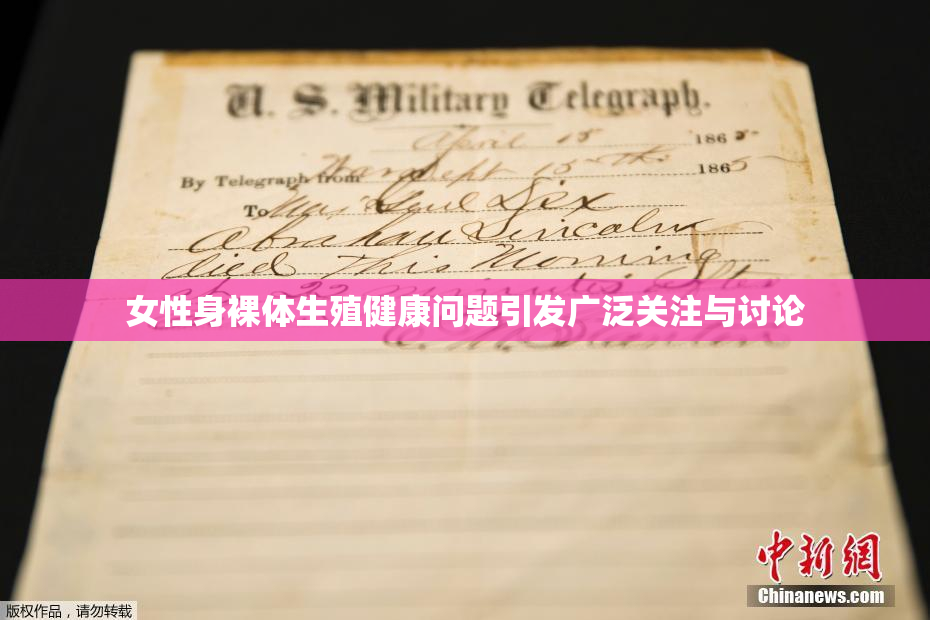 U. S. Military Telegraph.
April 15 1865
By Telegraph from War Dept 15th 1865
To Maj Genl Dix
Abraham Lincoln
died this Morning
at 22 minutes after
女性身裸体生殖健康问题引发广泛关注与讨论
E. M. Stanton
中新网
Chinanews.com
版权作品，请勿转载